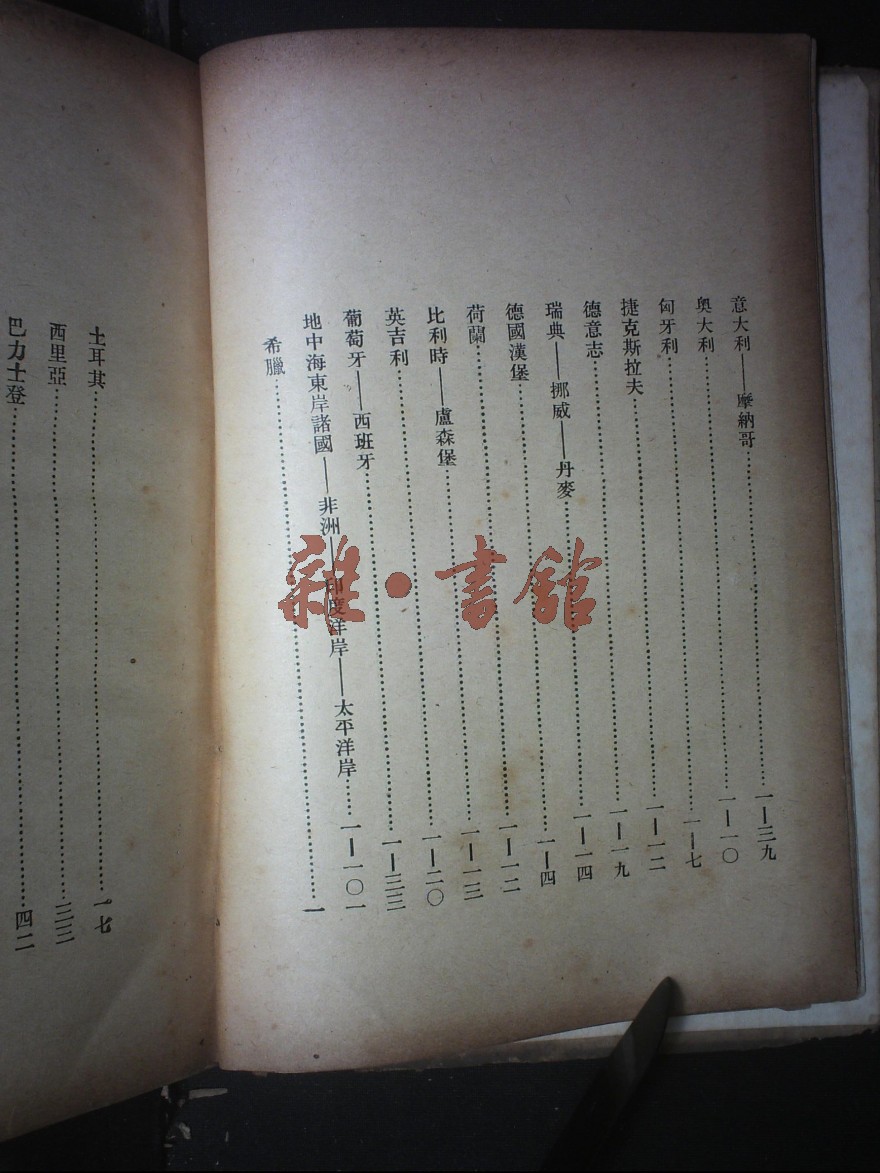 意大利——摩納哥……一—三九
奥大利……一—一〇
匈牙利……一—七
捷克斯拉夫……一—一二
德意志……一—一九
瑞典——挪威——丹麥……一—一四
德國漢堡……一—四
荷蘭……一—一二
比利時——盧森堡……一—一三
英吉利……一—二〇
葡萄牙——西班牙……一—三三
地中海東岸諸國——非洲——印度洋岸——太平洋岸……一—一〇一
希臘……一
土耳其……一七
西里亞……三三
巴力士登……四二
雜·書館